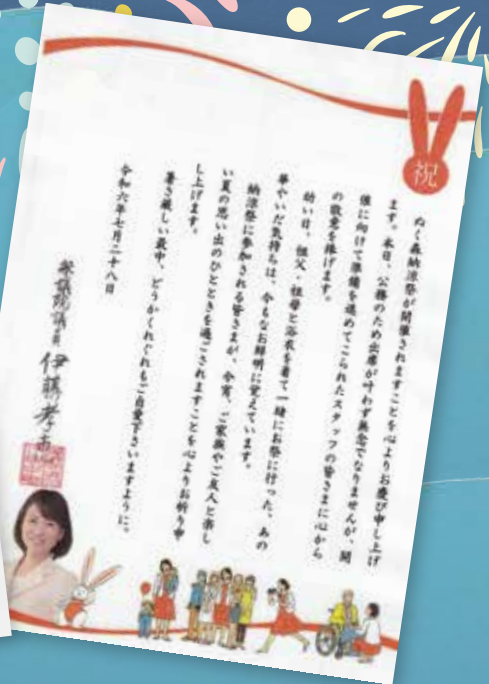 祝
ぬく森納涼祭が開催されますことを心よりお慶び申し上げ
ます。本日、公務のため出席が叶わず無念でなりませんが、開
催に向けて準備を進めてこられたスタッフの皆さまに心から
の敬意を捧げます。
幼い日、祖父・祖母と浴衣を着て一緒にお祭に行った、あの
華やいだ気持ちは、今もなお鮮明に覚えています。
納涼祭に参加される皆さまが、今宵、ご家族やご友人と楽し
い夏の思い出のひとときを過ごされますことを心よりお祈り申
し上げます。
暑さ厳しい最中、どうかくれぐれもご自愛下さいますように。
令和六年七月二十八日
参議院議員 伊藤孝